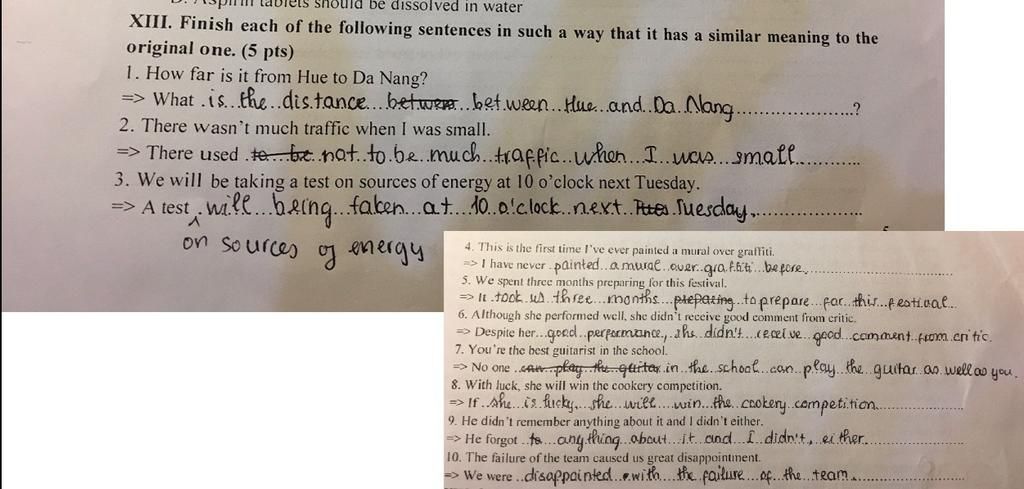 D. Aspirin tablets should be dissolved in water
XIII. Finish each of the following sentences in such a way that it has a similar meaning to the
original one. (5 pts)
1. How far is it from Hue to Da Nang?
=> What is the distance betwen between Hue and Da Nang ?
2. There wasn't much traffic when I was small.
=> There used to be not to be much traffic when I was small
3. We will be taking a test on sources of energy at 10 o'clock next Tuesday.
=> A test will being taken at 10 o'clock next Tues Tuesday.
on sources of energy
4. This is the first time I've ever painted a mural over graffiti.
=> I have never painted a mural over graffiti before
5. We spent three months preparing for this festival.
=> It took us three months preparing to prepare for this festival
6. Although she performed well, she didn't receive good comment from critic.
=> Despite her good performance, she didn't receive good comment from critic.
7. You're the best guitarist in the school.
=> No one can play the guitar in the school can play the guitar as well as you.
8. With luck, she will win the cookery competition.
=> If she is lucky, she will win the cookery competition
9. He didn't remember anything about it and I didn't either.
=> He forgot to anything about it and I didn't, either
10. The failure of the team caused us great disappointment.
=> We were disappointed with the failure of the team